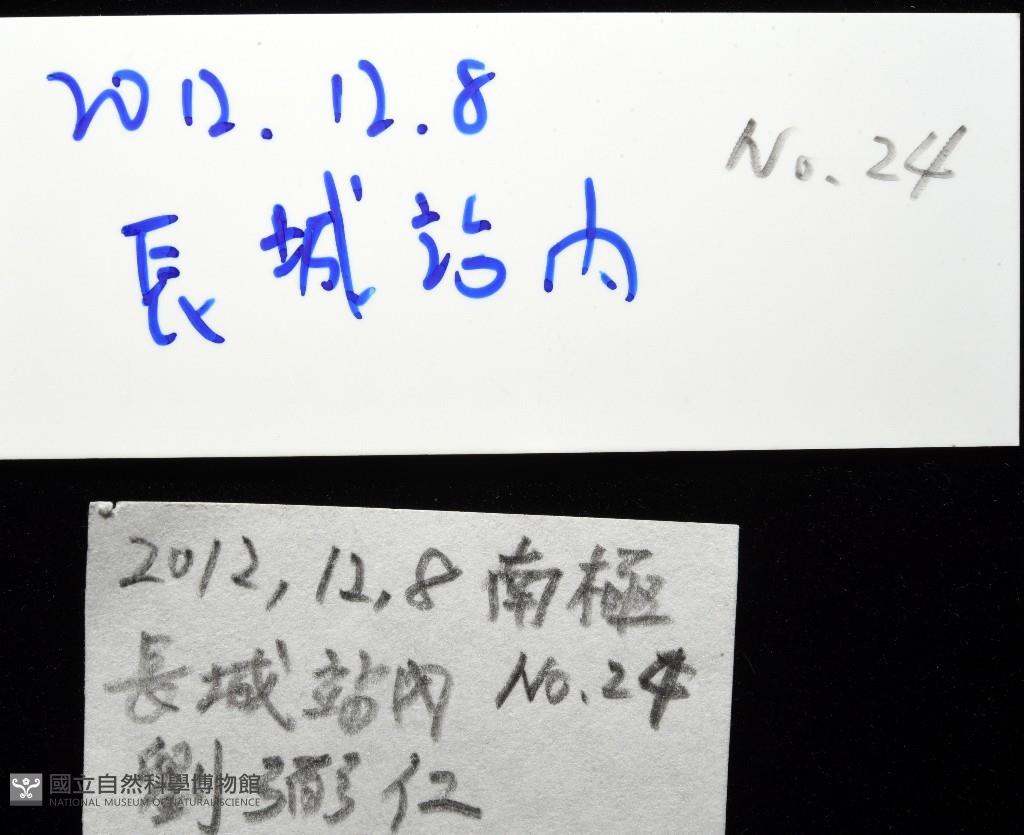 2012.12.8
No.24
長城站内
2012,12,8 南極
長城站內 No.24
劉弼仁
國立自然科學博物館
NATIONAL MUSEUM OF NATURAL SCIENCE